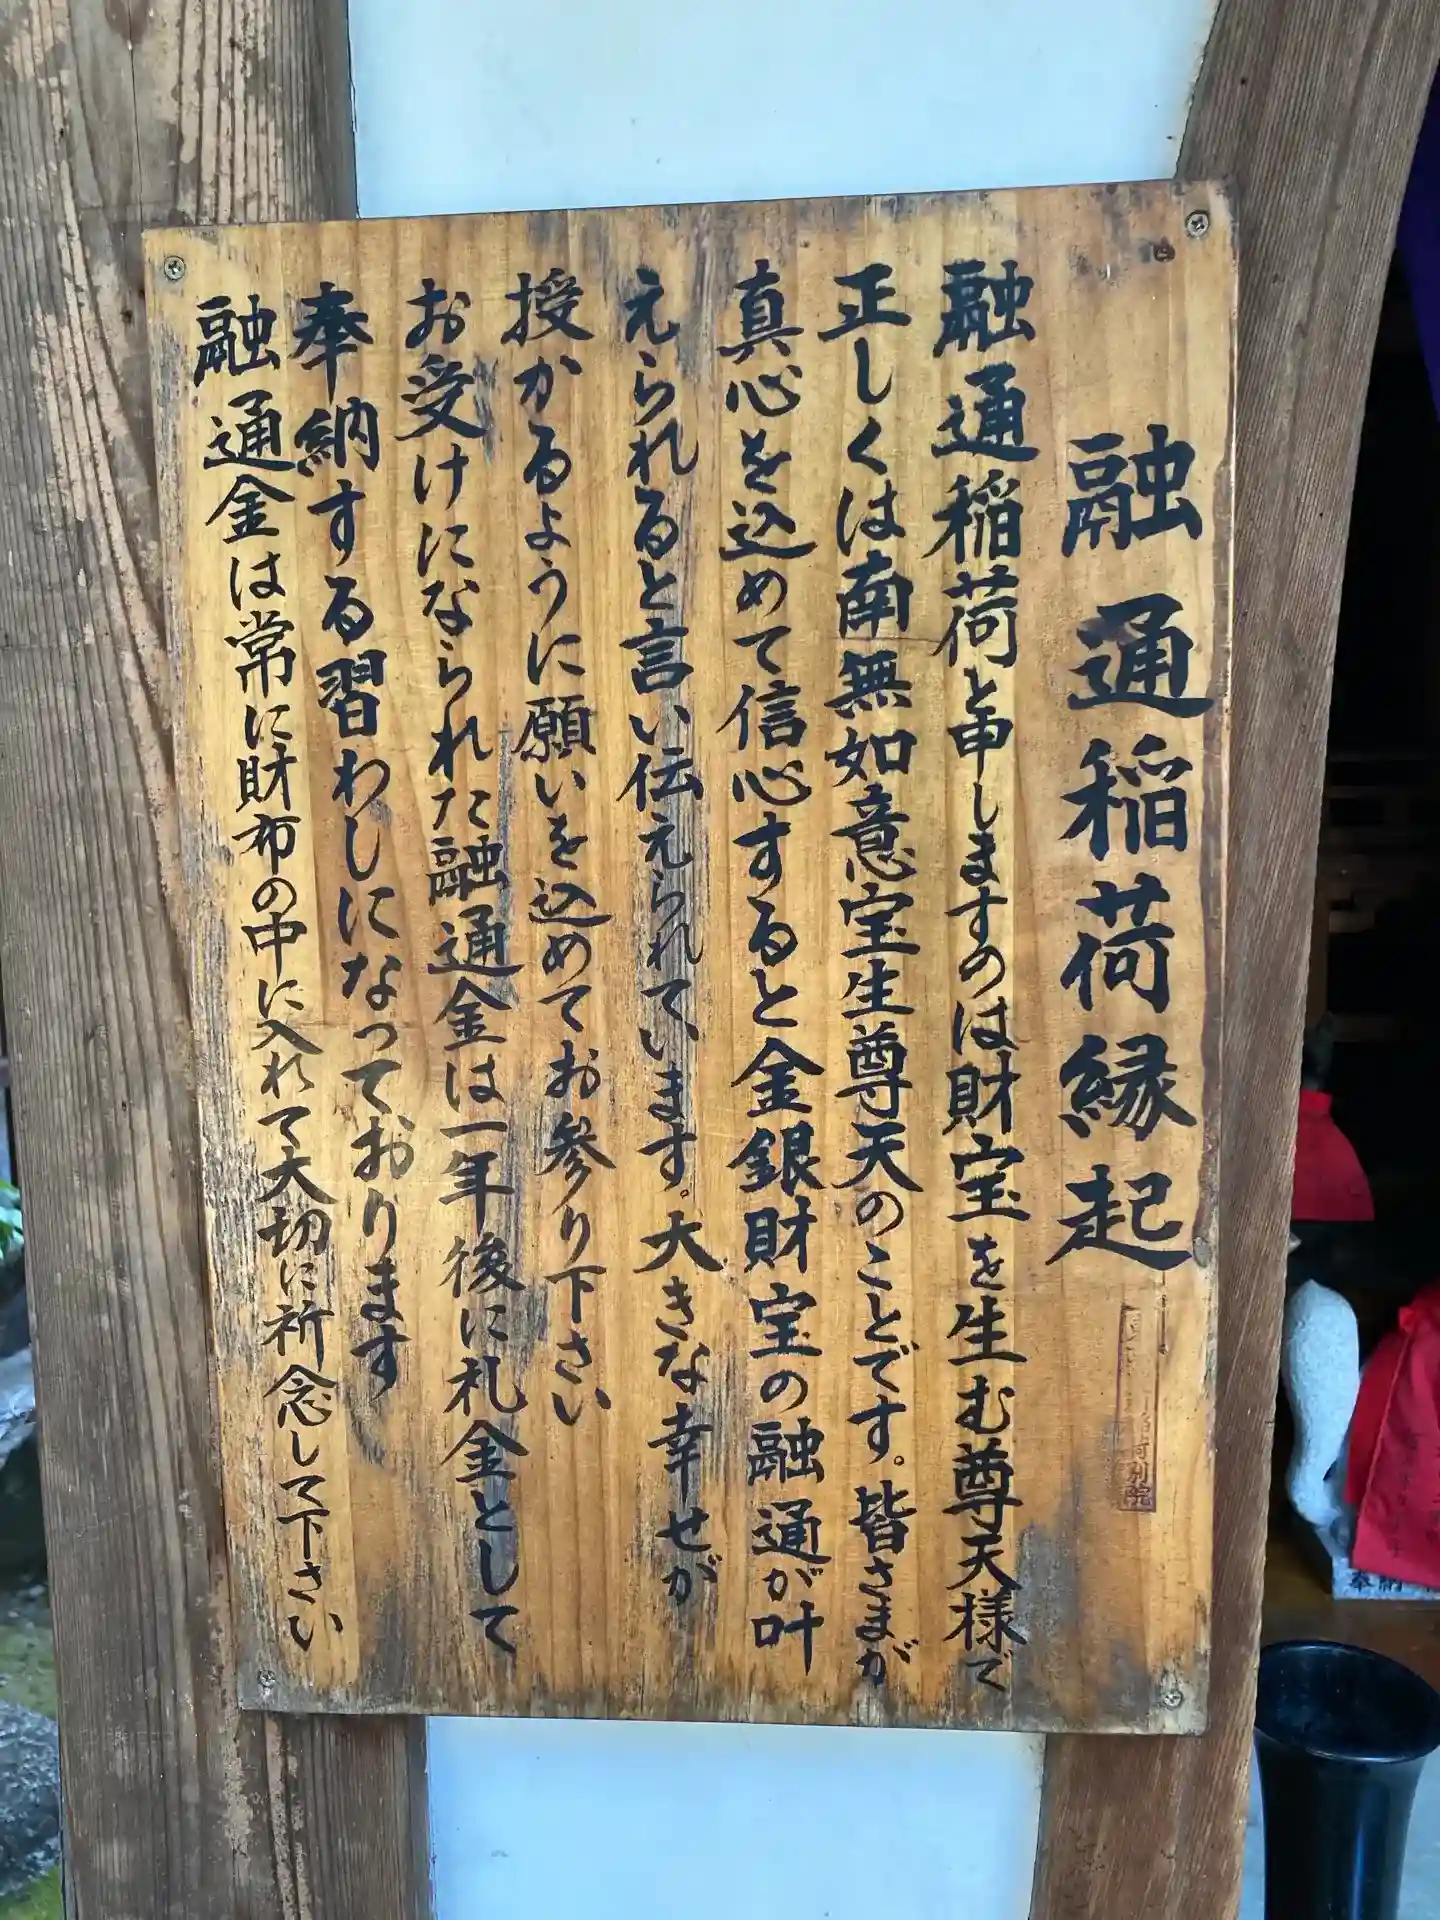 融通稲荷縁起
融通稲荷と申しますのは財宝を生む尊天様で
正しくは南無如意宝生尊天のことです。皆さまが
真心を込めて信心すると金銀財宝の融通が叶
えられると言い伝えられています。大きな幸せが
授かるように願いを込めてお参り下さい
お受けになられた融通金は一年後に札金として
奉納する習わしになっております
融通金は常に財布の中に入れて大切に祈念して下さい
別院
奉納